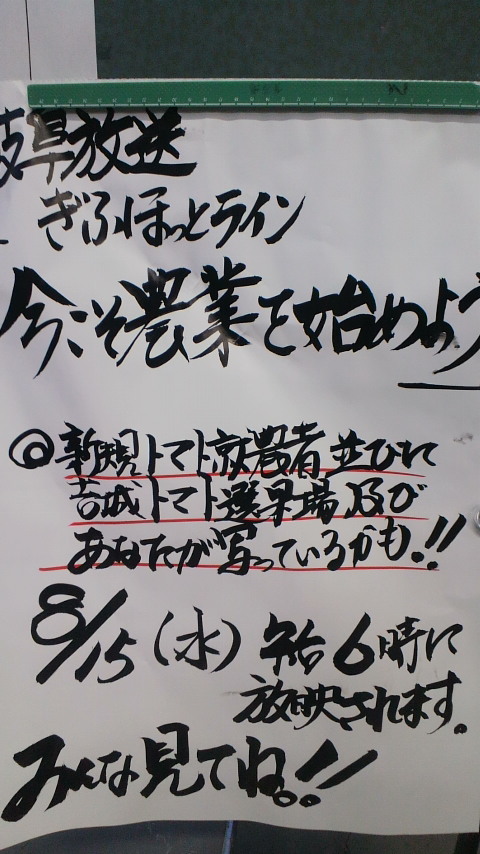 岐阜放送
ぎふほっとライン
今こそ農業を始めよう
◎新規トマト就農者並びに
苔城トマト選果場及び
あなたが写っているかも!!
8/15(水) 午後6時に
放映されます。
みんな見てね。!!